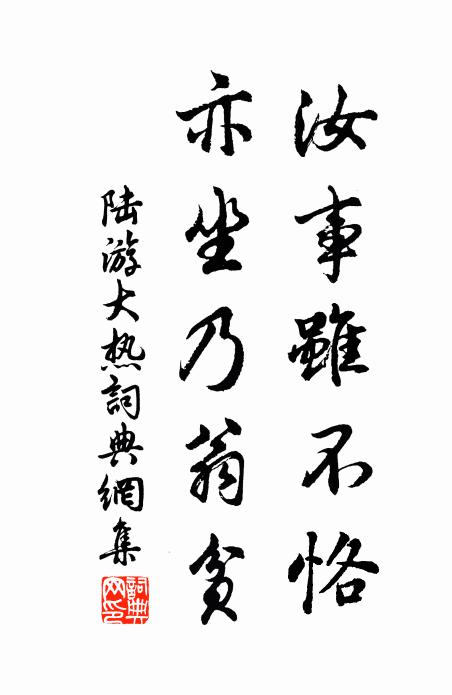 汝事雖不恪
亦坐乃翁貧
陆游大热詞典網集
詞典网印